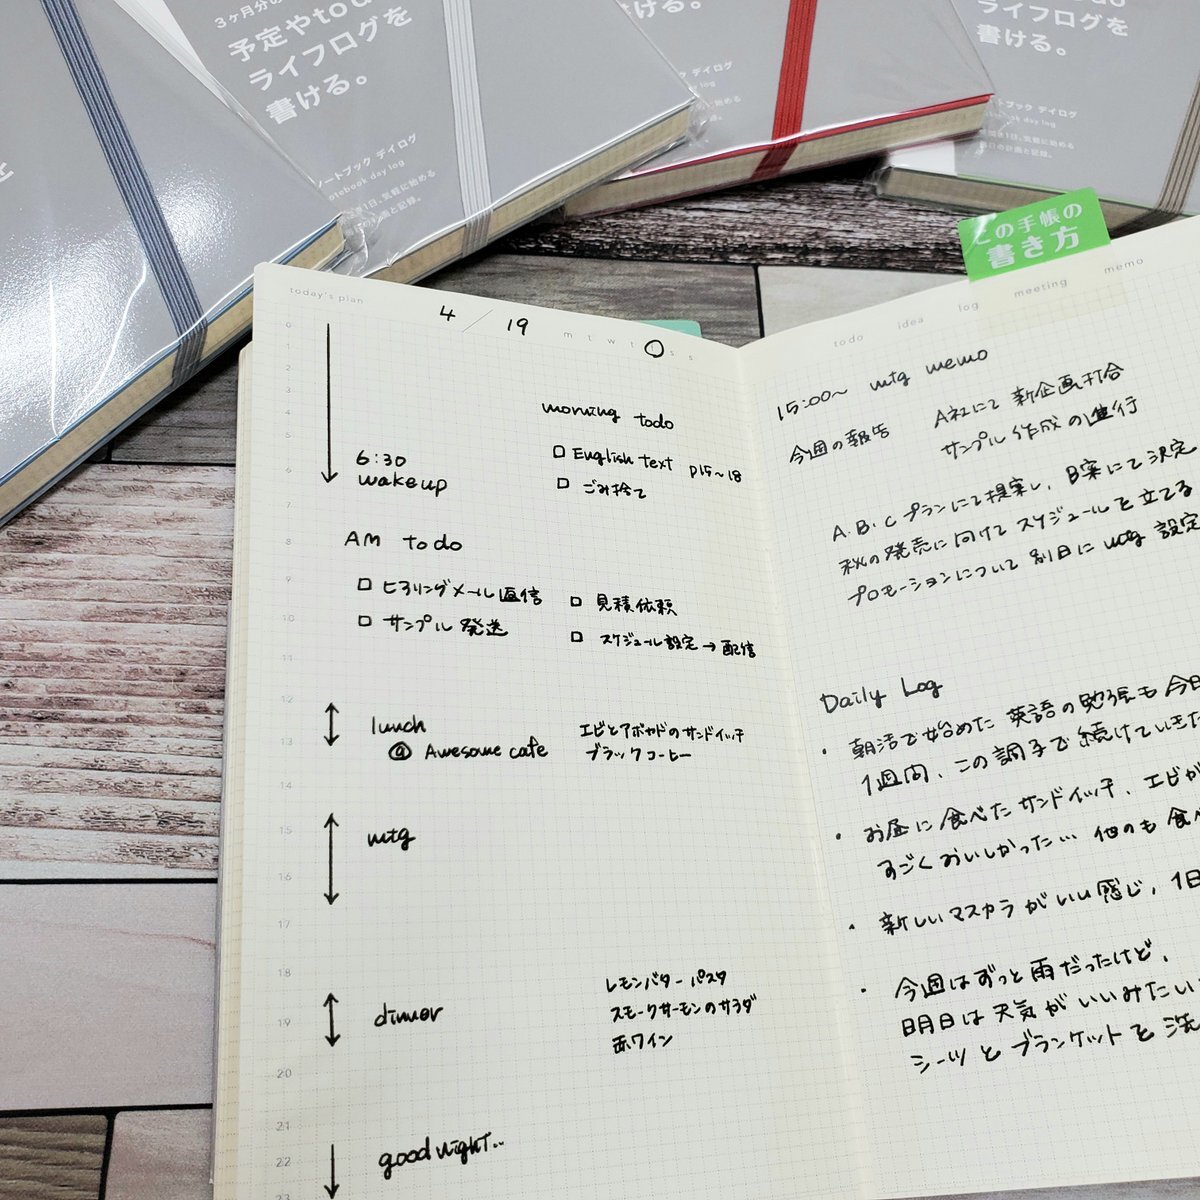 3ヶ月分の
予定やtodo
ライフログを
書ける。
ノートブック デイログ
notebook day log
ライフログを
書ける。
ノートブック デイログ
この手帳の
書き方
today's plan
4/19
m t w t f s s
todo idea log meeting memo
0
1
2
5
6
7
8
9
10
11
12
13
14
15
16
17
18
19
20
21
22
23
6:30
wake up
morning todo
□ English text p15～18
□ ごみ捨て
AM todo
□ ヒアリングメール返信
□ サンプル発送
□ 見積依頼
□ スケジュール設定→配信
lunch
@ Awesome cafe
エビとアボカドのサンドイッチ
ブラックコーヒー
mtg
dinner
レモンバターパスタ
スモークサーモンのサラダ
赤ワイン
good night..
15:00～ mtg memo
今週の報告
A社にて新企画打合
サンプル作成の進行
A.B.Cプランにて提案し、B案にて決定
秋の発売に向けてスケジュールを立てる
プロモーションについて別日にmtg設定
Daily Log
・朝活で始めた英語の勉強も今日
1週間、この調子で続けていきた
・お昼に食べたサンドイッチ、エビが
すごくおいしかった… 他のも食べ
・新しいマスカラがいい感じ、1日
・今週はずっと雨だったけど、
明日は天気がいいみたい
シーツとブランケットを洗